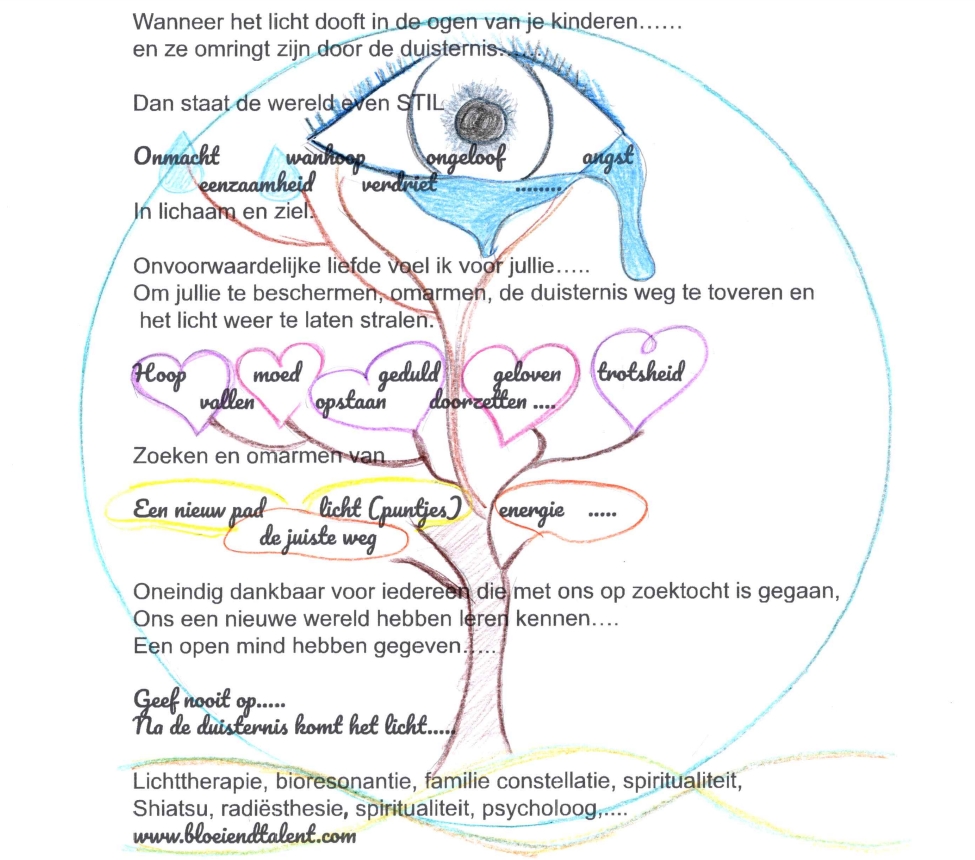 Wanneer het licht dooft in de ogen van je kinderen……
en ze omringt zijn door de duisternis……
Dan staat de wereld even STIL
Onmacht wanhoop ongeloof angst
eenzaamheid verdriet ........
In lichaam en ziel.
Onvoorwaardelijke liefde voel ik voor jullie…..
Om jullie te beschermen, omarmen, de duisternis weg te toveren en
het licht weer te laten stralen.
Hoop moed geduld geloven trotsheid
vallen opstaan doorzetten ....
Zoeken en omarmen van
Een nieuw pad licht (puntjes) energie .....
de juiste weg
Oneindig dankbaar voor iedereen die met ons op zoektocht is gegaan,
Ons een nieuwe wereld hebben leren kennen….
Een open mind hebben gegeven……
Geef nooit op.....
Na de duisternis komt het licht.....
Lichttherapie, bioresonantie, familie constellatie, spiritualiteit,
Shiatsu, radiësthesie, spiritualiteit, psycholoog,....
www.bloeiendtalent.com